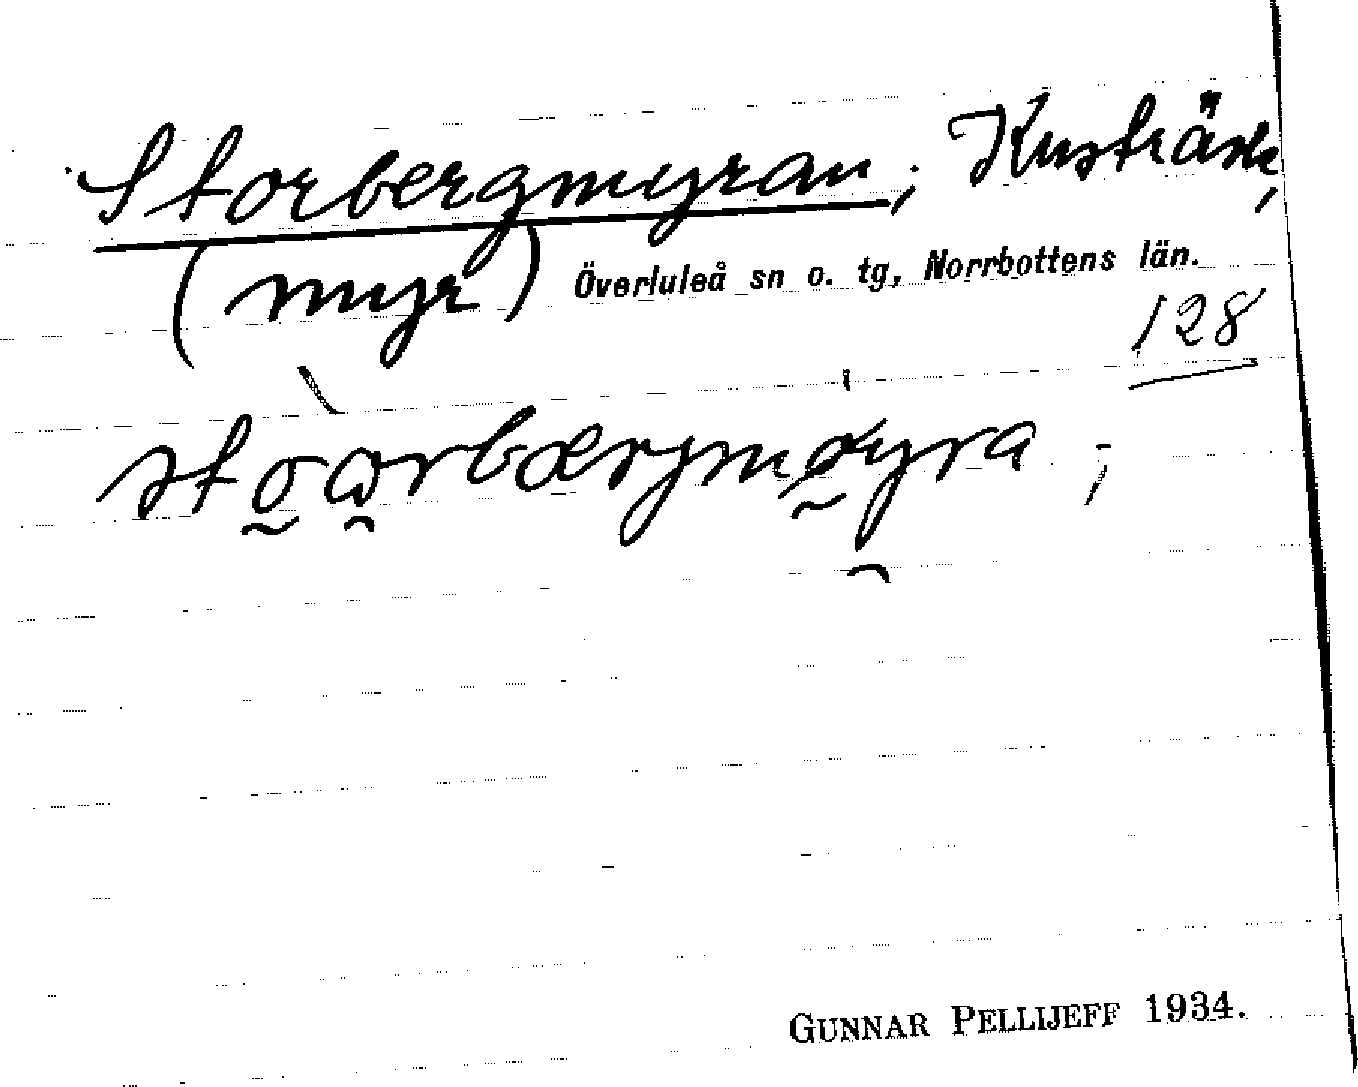 Storbergmyran; Kusträsk,
(myr) Överluleå sn o. tg, Norrbottens län.
128
stoωrbærjmøyra ;
GUNNAR PELLIJEFF 1934.